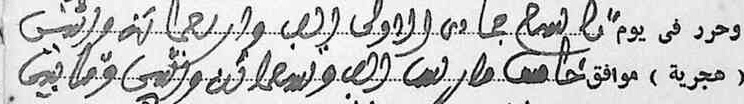 وحرر فى يوم تاسع جمادى الاولى الف واربعمائة واثنين
( هجرية ) موافق خامس مارس الف وتسعمائة واثنين وثمانين